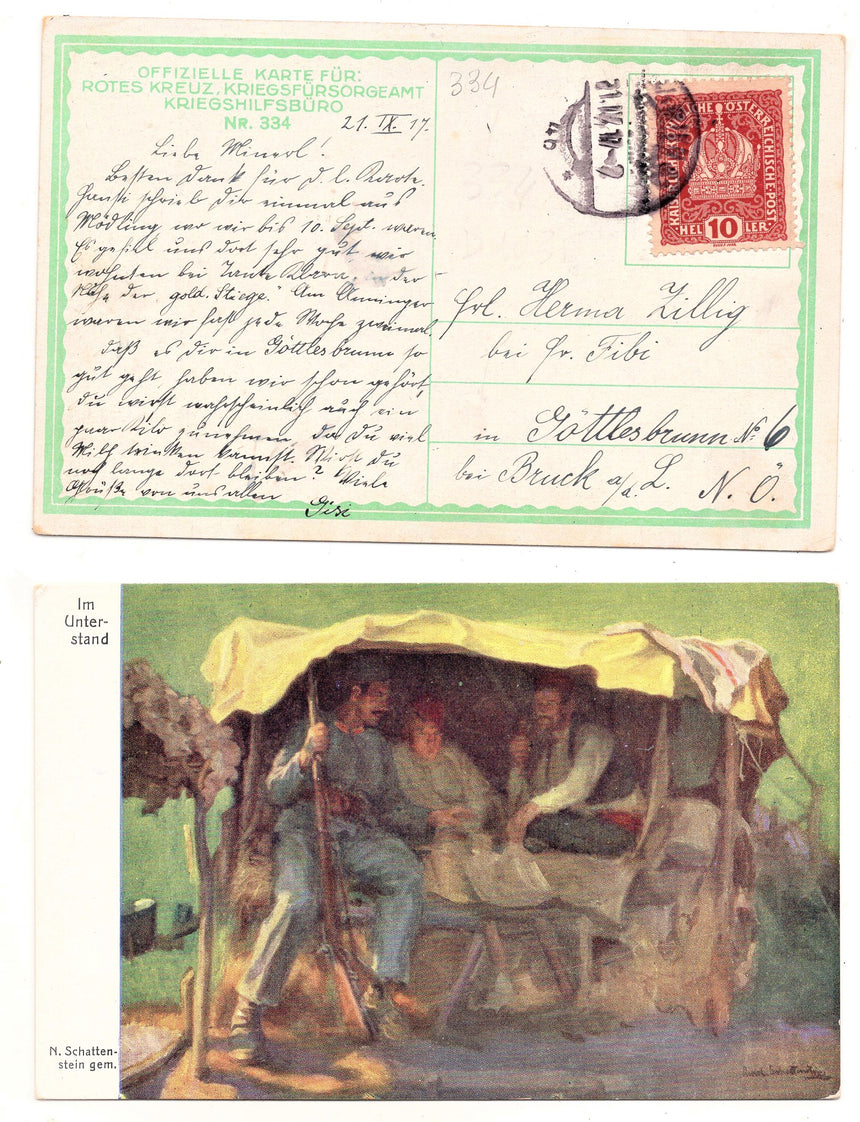 OFFIZIELLE KARTE FÜR:
ROTES KREUZ, KRIEGSFÜRSORGEAMT
KRIEGSHILFSBÜRO
NR. 334
334
21. IX. 17.
Liebe Minerl!
Besten Dank für d. l. Karte.
Hansi schrieb dir einmal aus
Mödling, wo wir bis 10. Sept. waren.
Es gefiel uns dort sehr gut, wir
wohnten bei Tante Klara, in der
Nähe der "gold. Stiege." Am Anninger
waren wir fast jede Woche zweimal.
Daß es dir in Göttlesbrunn so
gut geht, haben wir schon gehört,
du wirst wahrscheinlich auch ein
paar Kilo zunehmen, da du viel
Milch trinken kannst. Wirst du
noch lange dort bleiben? Viele
Grüße von uns allen
Gisi
KAISERLICHE ÖSTERREICHISCHE POST
HEL 10 LER
21.IX.17
4b
Frl. Herma Zillig
bei Fr. Fibi
in Göttlesbrunn No. 6
bei Bruck a/d. L. N. Ö.
Im
Unter-
stand
N. Schatten-
stein gem.